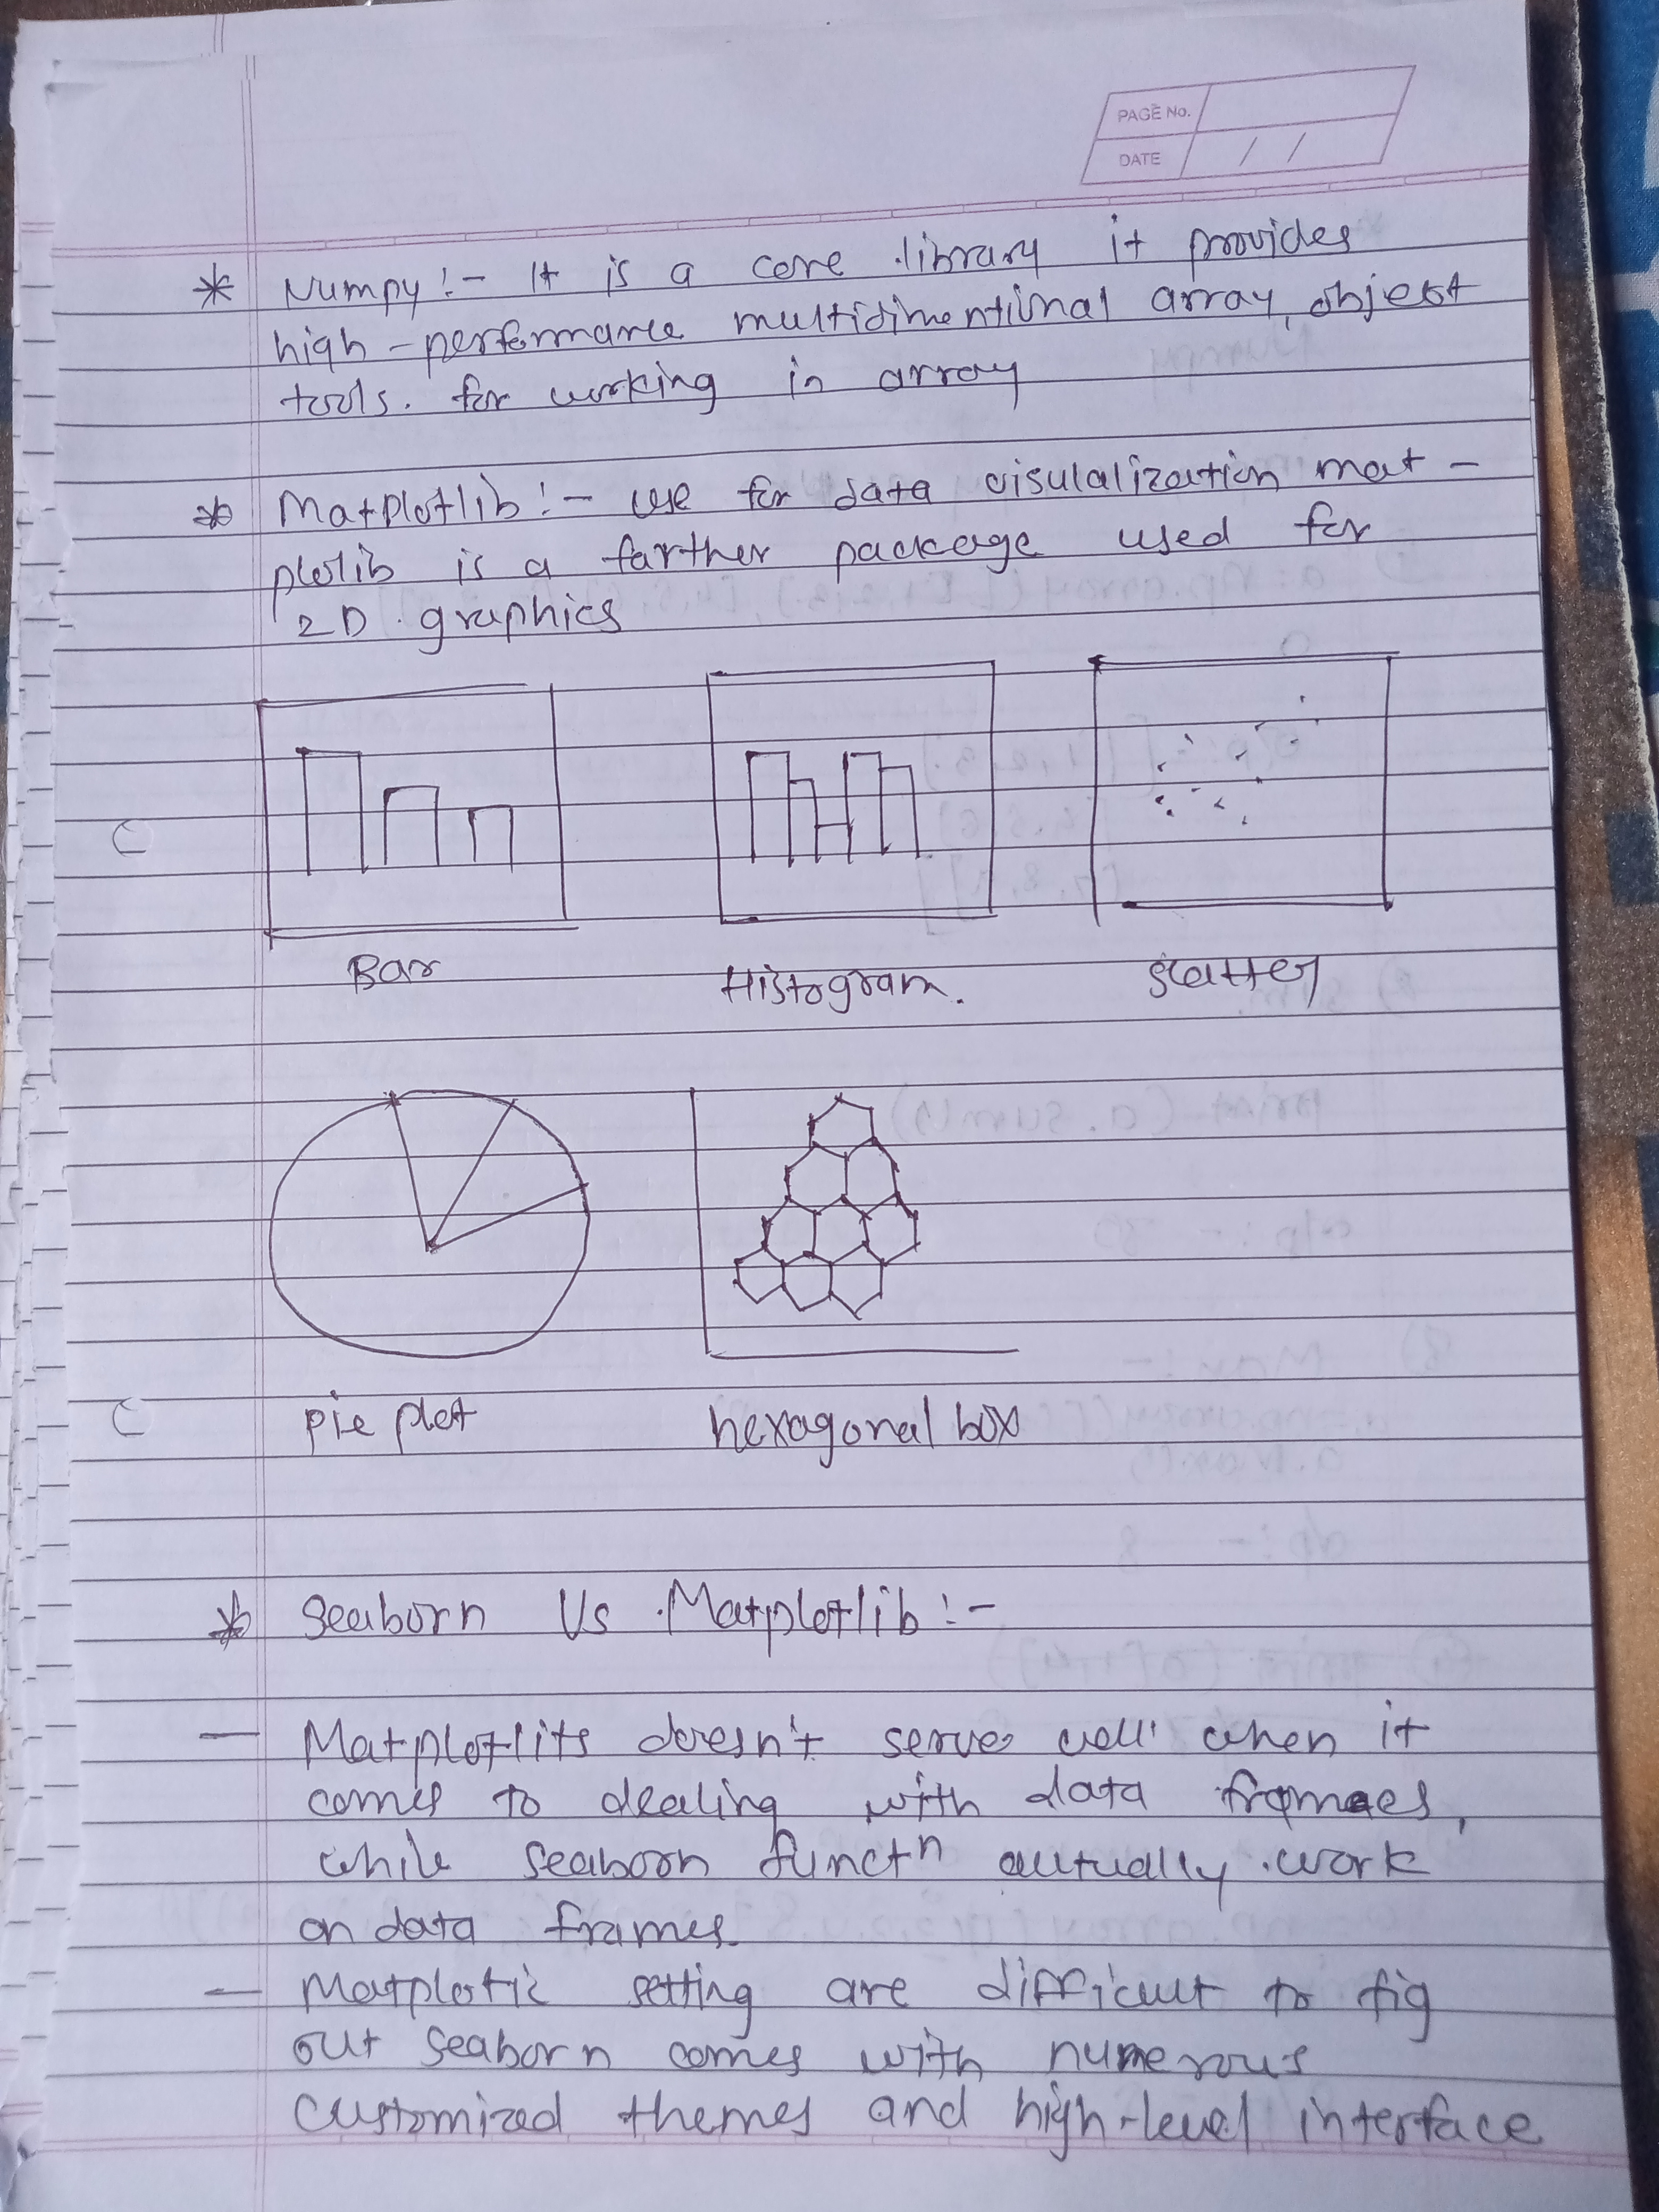 PAGE No.
DATE / /
* Numpy :- It is a core library it provides
high-performance multidimentional array, object
tools. for working in array
* Matplotlib :- use for data visulalization mat-
plotlib is a farther package used for
2D graphics
Bar Histogram. Scatter
pie plot hexagonal box
* Seaborn Vs Matplotlib :-
— Matplotlits doesn't serve well when it
comes to dealing with data frames,
while Seaborn functn actually work
on data frames.
— Matplotlic setting are difficult to fig
out Seaborn comes with numerous
customized themes and high-level interface